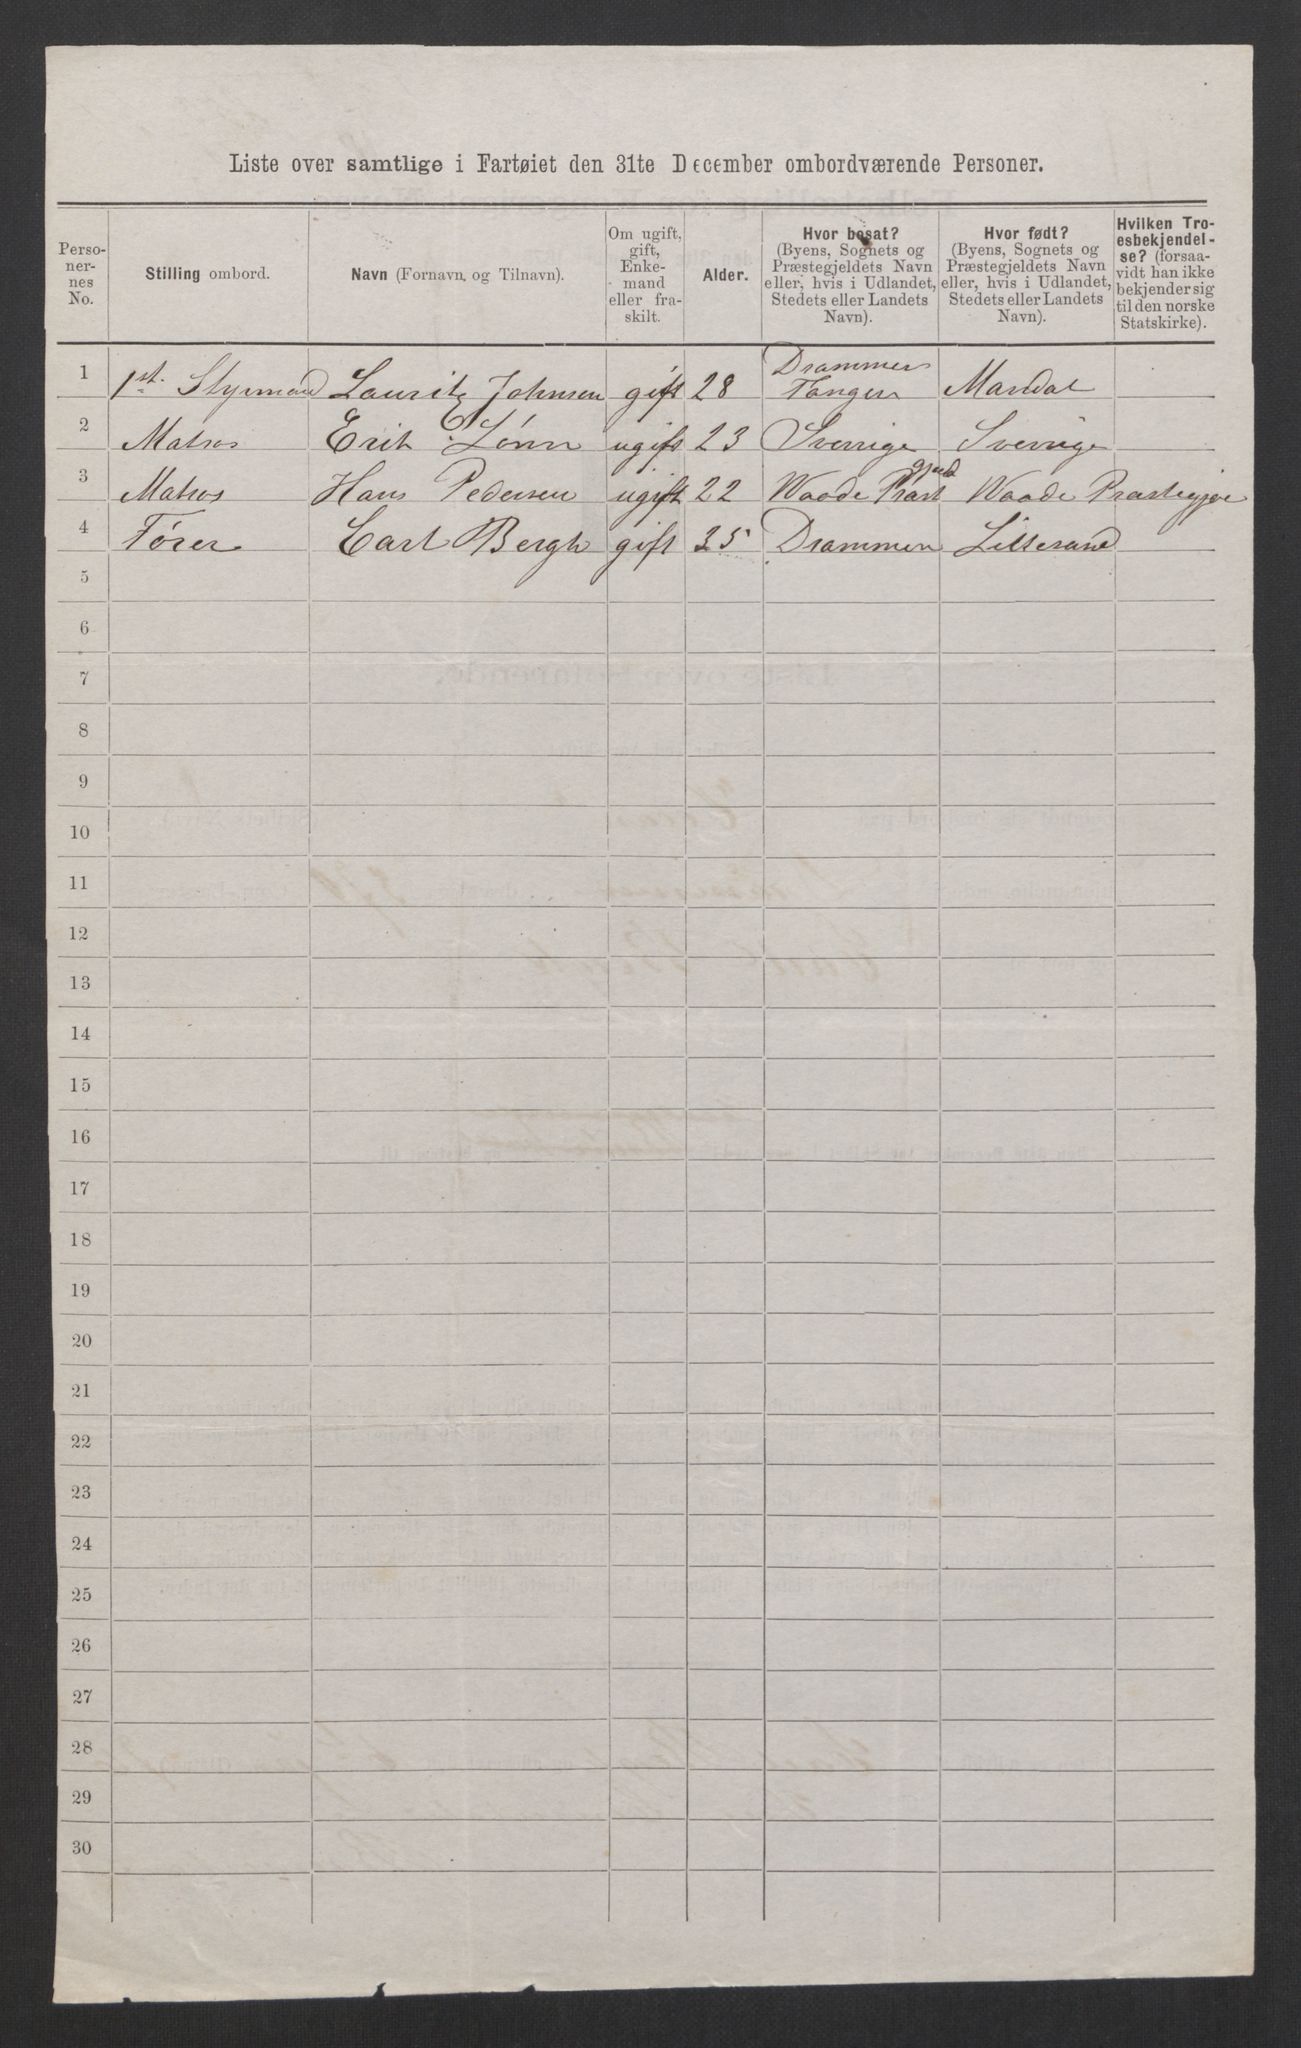 Liste over samtlige i Fartøiet den 31te December ombordværende Personer.
Perso-
ner-
nes
No.
Stilling ombord.
Navn (Fornavn, og Tilnavn).
Om ugift,
gift,
Enke-
mand
eller fra-
skilt.
Alder.
Hvor bosat?
(Byens, Sognets og
Præstegjeldets Navn
eller, hvis i Udlandet,
Stedets eller Landets
Navn).
Hvor født?
(Byens, Sognets og
Præstegjeldets Navn
eller, hvis i Udlandet,
Stedets eller Landets
Navn).
Hvilken Tro-
esbekjendel-
se? (forsaa-
vidt han ikke
bekjender sig
til den norske
Statskirke).
Drammen
1 1st. Styrmand Lauritz Johnsen gift 28 Tangen Mandal
2 Matros Erik Lönn ugift 23 Sverrige Sverrige
gjeld
3 Matros Hans Pedersen ugift 22 Waade Præst Waade Præstegje
4 Fører Carl Bergh gift 35 Drammen Lillesand
5
6
7
8
9
10
11
12
13
14
15
16
17
18
19
20
21
22
23
24
25
26
27
28
29
30